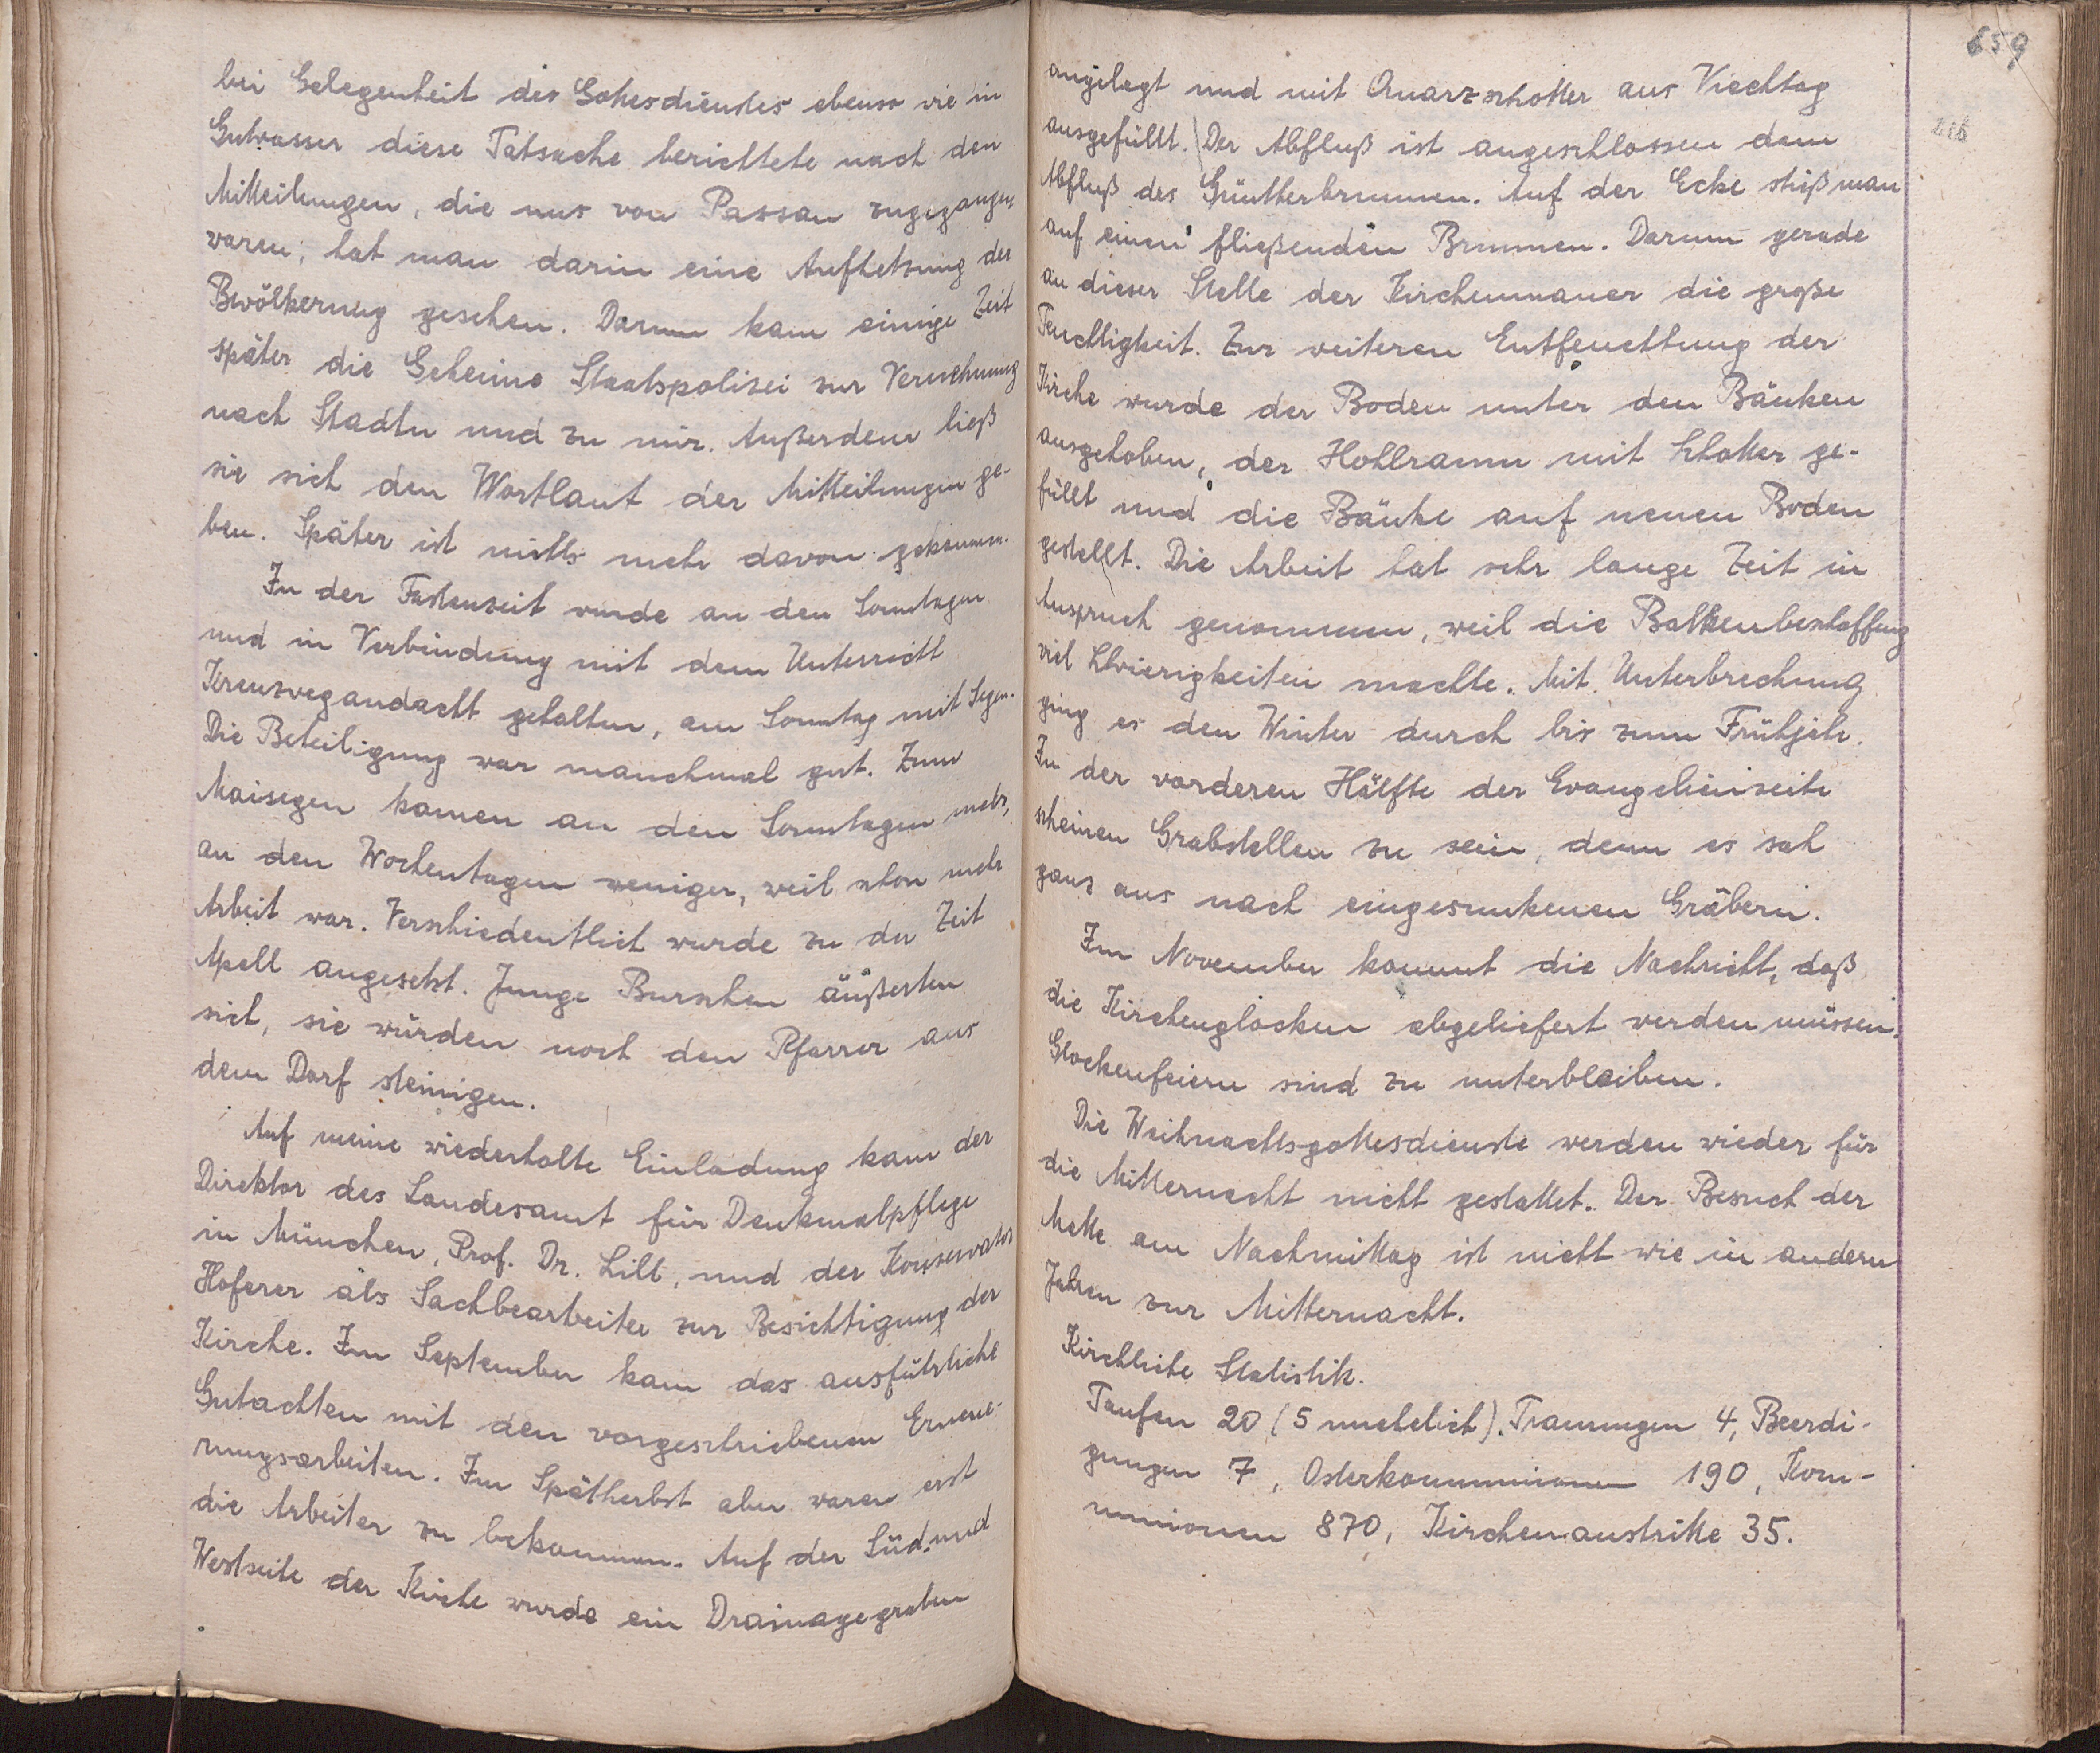 bei Gelegenheit des Gottesdienstes ebenso wie in
Gutwasser diese Tatsache berichtete nach den
Mitteilungen, die uns von Passau zugegangen
waren, hat man darin eine Aufhetzung der
Bevölkerung gesehen. Darum kam einige Zeit
später die Geheime Staatspolizei zur Vernehmung
nach Stadln und zu mir. Außerdem ließ
sie sich den Wortlaut der Mitteilungen ge-
ben. Später ist nichts mehr davon gekommen.
In der Fastenzeit wurde an den Sonntagen
und in Verbindung mit dem Unterricht
Kreuzwegandacht gehalten, am Sonntag mit Segen.
Die Beteiligung war manchmal gut. Zum
Maisegen kamen an den Sonntagen mehr,
an den Wochentagen weniger, weil schon mehr
Arbeit war. Verschiedentlich wurde zu der Zeit
Apell angesetzt. Junge Burschen äußerten
sich, sie würden noch den Pfarrer aus
dem Dorf steinigen.
Auf meine wiederholte Einladung kam der
Direktor des Landesamt für Denkmalpflege
in München, Prof. Dr. Lill, und der Konservator
Hoferer als Sachbearbeiter zur Besichtigung der
Kirche. Im September kam das ausführliche
Gutachten mit den vorgeschriebenen Erneue-
rungsarbeiten. Im Spätherbst aber waren erst
die Arbeiter zu bekommen. Auf der Süd- und
Westseite der Kirche wurde ein Drainagegraben
659
216
angelegt und mit Quarzschotter aus Viechtag
ausgefüllt. Der Abfluß ist angeschlossen dem
Abfluß des Güntherbrunnen. Auf der Ecke stieß man
auf einen fließenden Brunnen. Darum gerade
an dieser Stelle der Kirchenmauer die große
Feuchtigkeit. Zur weiteren Entfeuchtung der
Kirche wurde der Boden unter den Bänken
ausgehoben, der Hohlraum mit Schotter ge-
füllt und die Bänke auf neuen Boden
gestellt. Die Arbeit hat sehr lange Zeit in
Anspruch genommen, weil die Balkenbeschaffung
viel Schwierigkeiten machte. Mit Unterbrechung
ging es den Winter durch bis zum Frühjahr.
In der vorderen Hälfte der Evangelienseite
scheinen Grabstellen zu sein, denn es sah
ganz aus nach eingesunkenen Gräbern.
Im November kommt die Nachricht, daß
die Kirchenglocken abgeliefert werden müssen.
Glockenfeiern sind zu unterbleiben.
Die Weihnachtsgottesdienste werden wieder für
die Mitternacht nicht gestattet. Der Besuch der
Mette am Nachmittag ist nicht wie in andern
Jahren zur Mitternacht.
Kirchliche Statistik.
Taufen 20 (5 unehelich). Trauungen 4, Beerdi-
gungen 7, Osterkommunionen 190, Kom-
munionen 870, Kirchenaustritte 35.